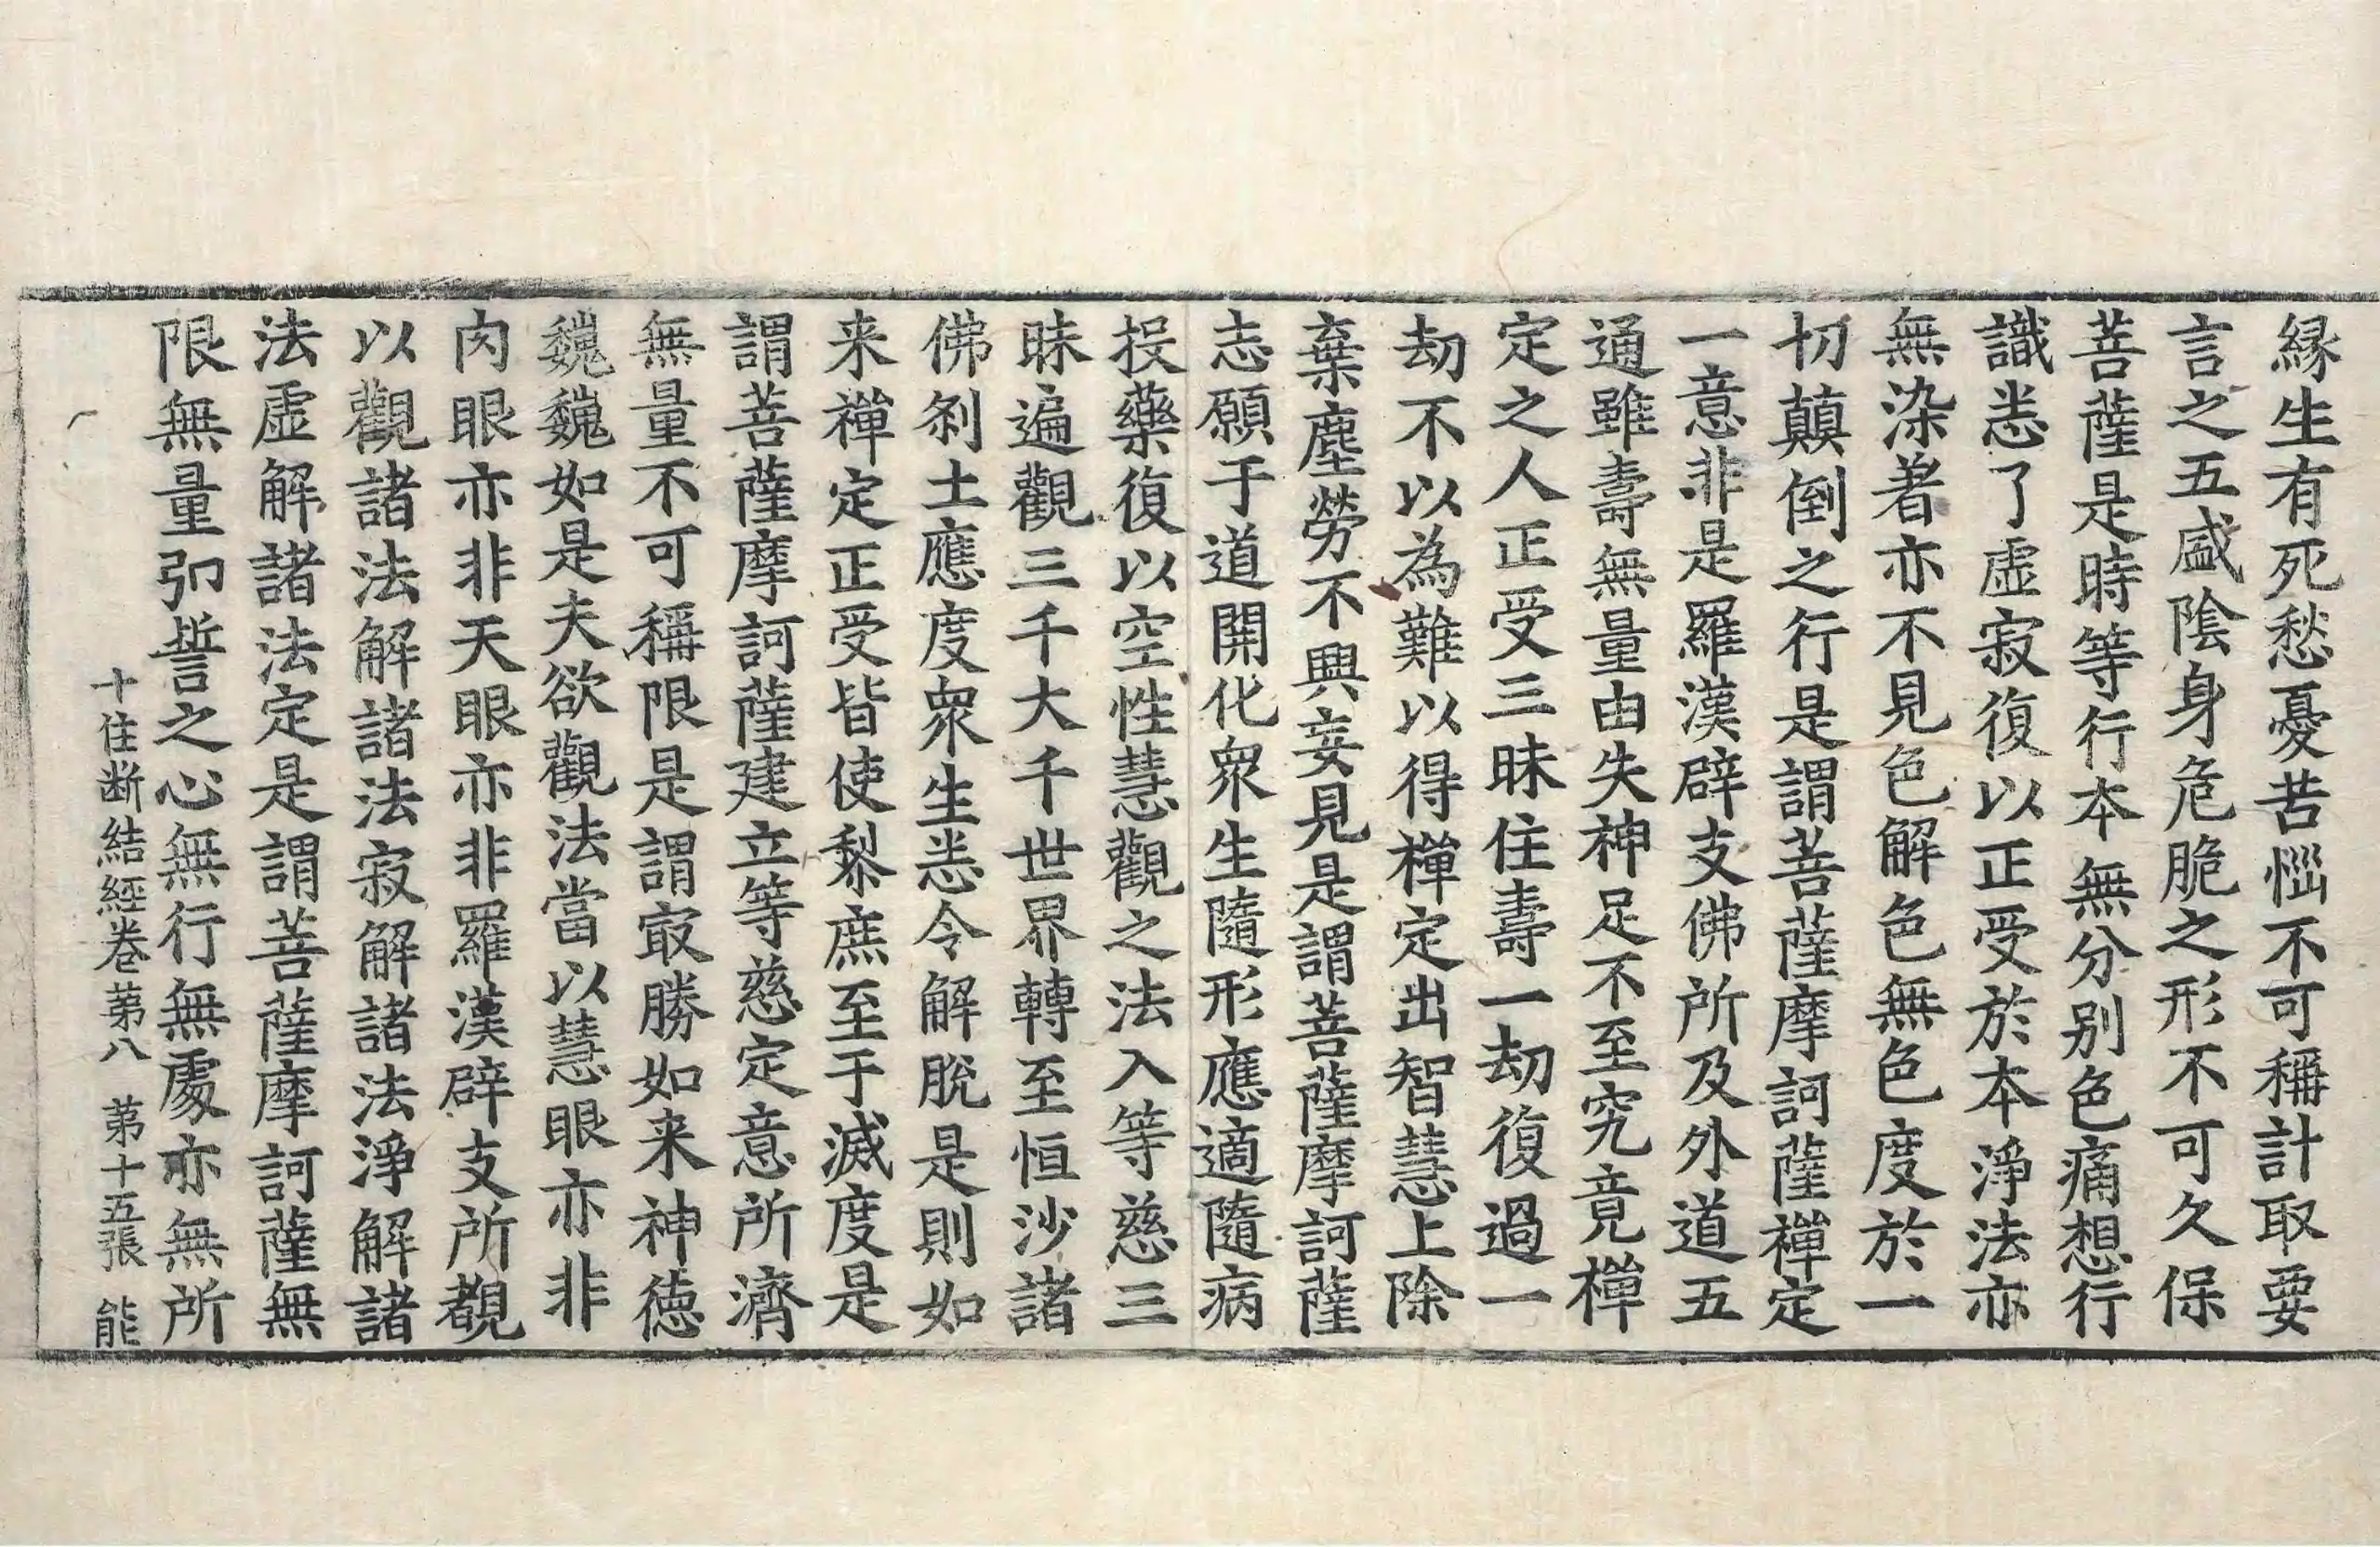 縁生有死愁憂苦惱不可稱計取要
言之五盛陰身危脆之形不可久保
菩薩是時等行本無分别色痛想行
識悉了虛寂復以正受於本淨法亦
無染著亦不見色解色無色度於一
切顛倒之行是謂菩薩摩訶薩禪定
一意非是羅漢辟支佛所及外道五
通雖壽無量由失神足不至究竟禪
定之人正受三昧住壽一劫復過一
劫不以為難以得禪定出智慧上除
棄塵勞不興妄見是謂菩薩摩訶薩
志願于道開化眾生隨形應適隨病
投藥復以空性慧觀之法入等慈三
昧遍觀三千大千世界轉至恒沙諸
佛刹土應度眾生悉令解脫是則如
来禪定正受皆使黎庶至于滅度是
謂菩薩摩訶薩建立等慈定意所濟
無量不可稱限是謂㝡勝如来神德
巍巍如是夫欲觀法當以慧眼亦非
肉眼亦非天眼亦非羅漢辟支所覩
以觀諸法解諸法寂解諸法淨解諸
法虛解諸法定是謂菩薩摩訶薩無
限無量弘誓之心無行無處亦無所
十住断結經卷苐八　苐十五張　能